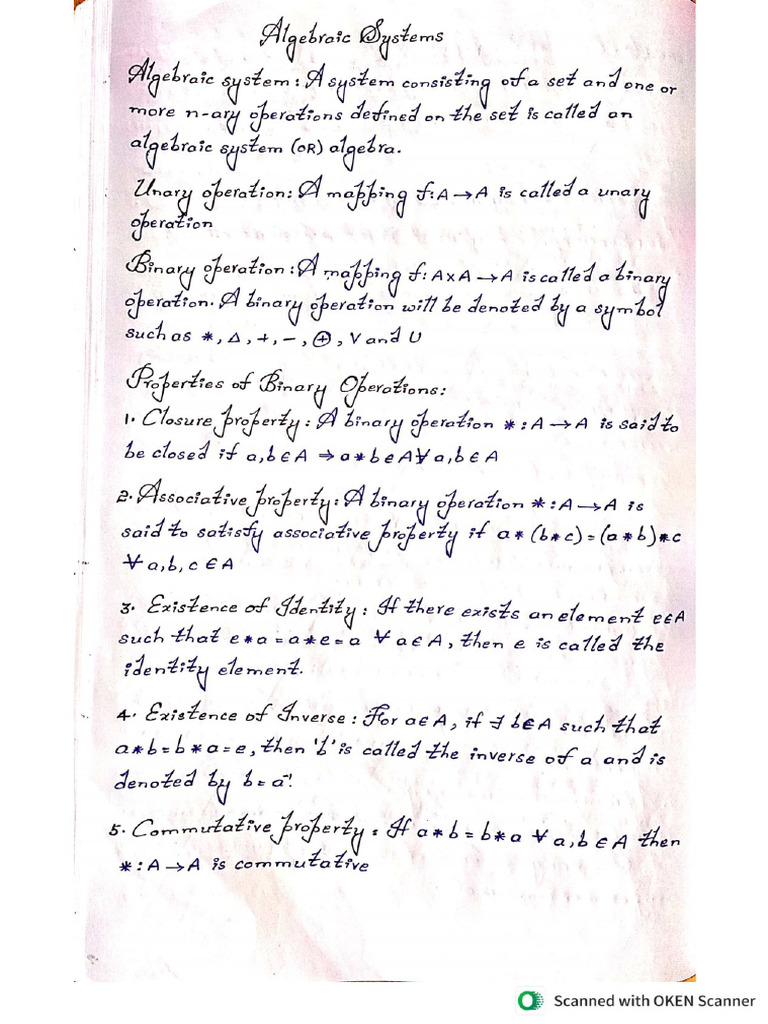 Algebraic Systems
Algebraic system: A system consisting of a set and one or
more n-ary operations defined on the set is called an
algebraic system (OR) algebra.
Unary operation: A mapping f: A → A is called a unary
operation
Binary operation: A mapping f: A x A → A is called a binary
operation. A binary operation will be denoted by a symbol
such as *, △, +, -, ⊕, V and U
Properties of Binary Operations:
1. Closure property: A binary operation *: A → A is said to
be closed if a, b ∈ A ⇒ a * b ∈ A ∀ a, b ∈ A
2. Associative property: A binary operation *: A → A is
said to satisfy associative property if a * (b * c) = (a * b) * c
∀ a, b, c ∈ A
3. Existence of Identity: If there exists an element e ∈ A
such that e * a = a * e = a ∀ a ∈ A, then e is called the
identity element.
4. Existence of Inverse: For a ∈ A, if ∃ b ∈ A such that
a * b = b * a = e, then 'b' is called the inverse of a and is
denoted by b = a⁻¹.
5. Commutative property: If a * b = b * a ∀ a, b ∈ A then
*: A → A is commutative
Scanned with OKEN Scanner